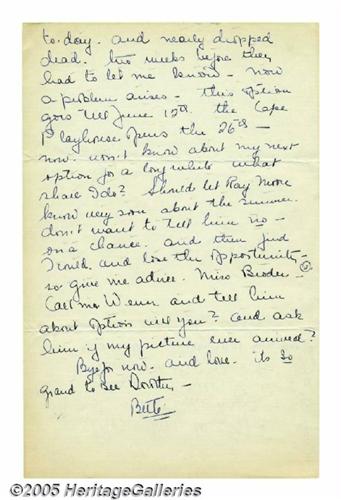 to-day. and nearly dropped
dead. two weeks before they
had to let me know - now
a problem arises - this option
goes till June 12th. the Cape
Playhouse opens the 26th -
now. won't know about my next
option for a long while what
shall I do? Should let Ray Moore
know very soon about the summer.
don't want to tell him no -
on a chance. and then find
I could. and lose the opportunity -
so give me advice. Miss
Call me W. and tell him
about option will you? and ask
him if my picture ever arrived?
Bye for now. and love. its so
grand to see Dorothy -
Bette
©2005 HeritageGalleries